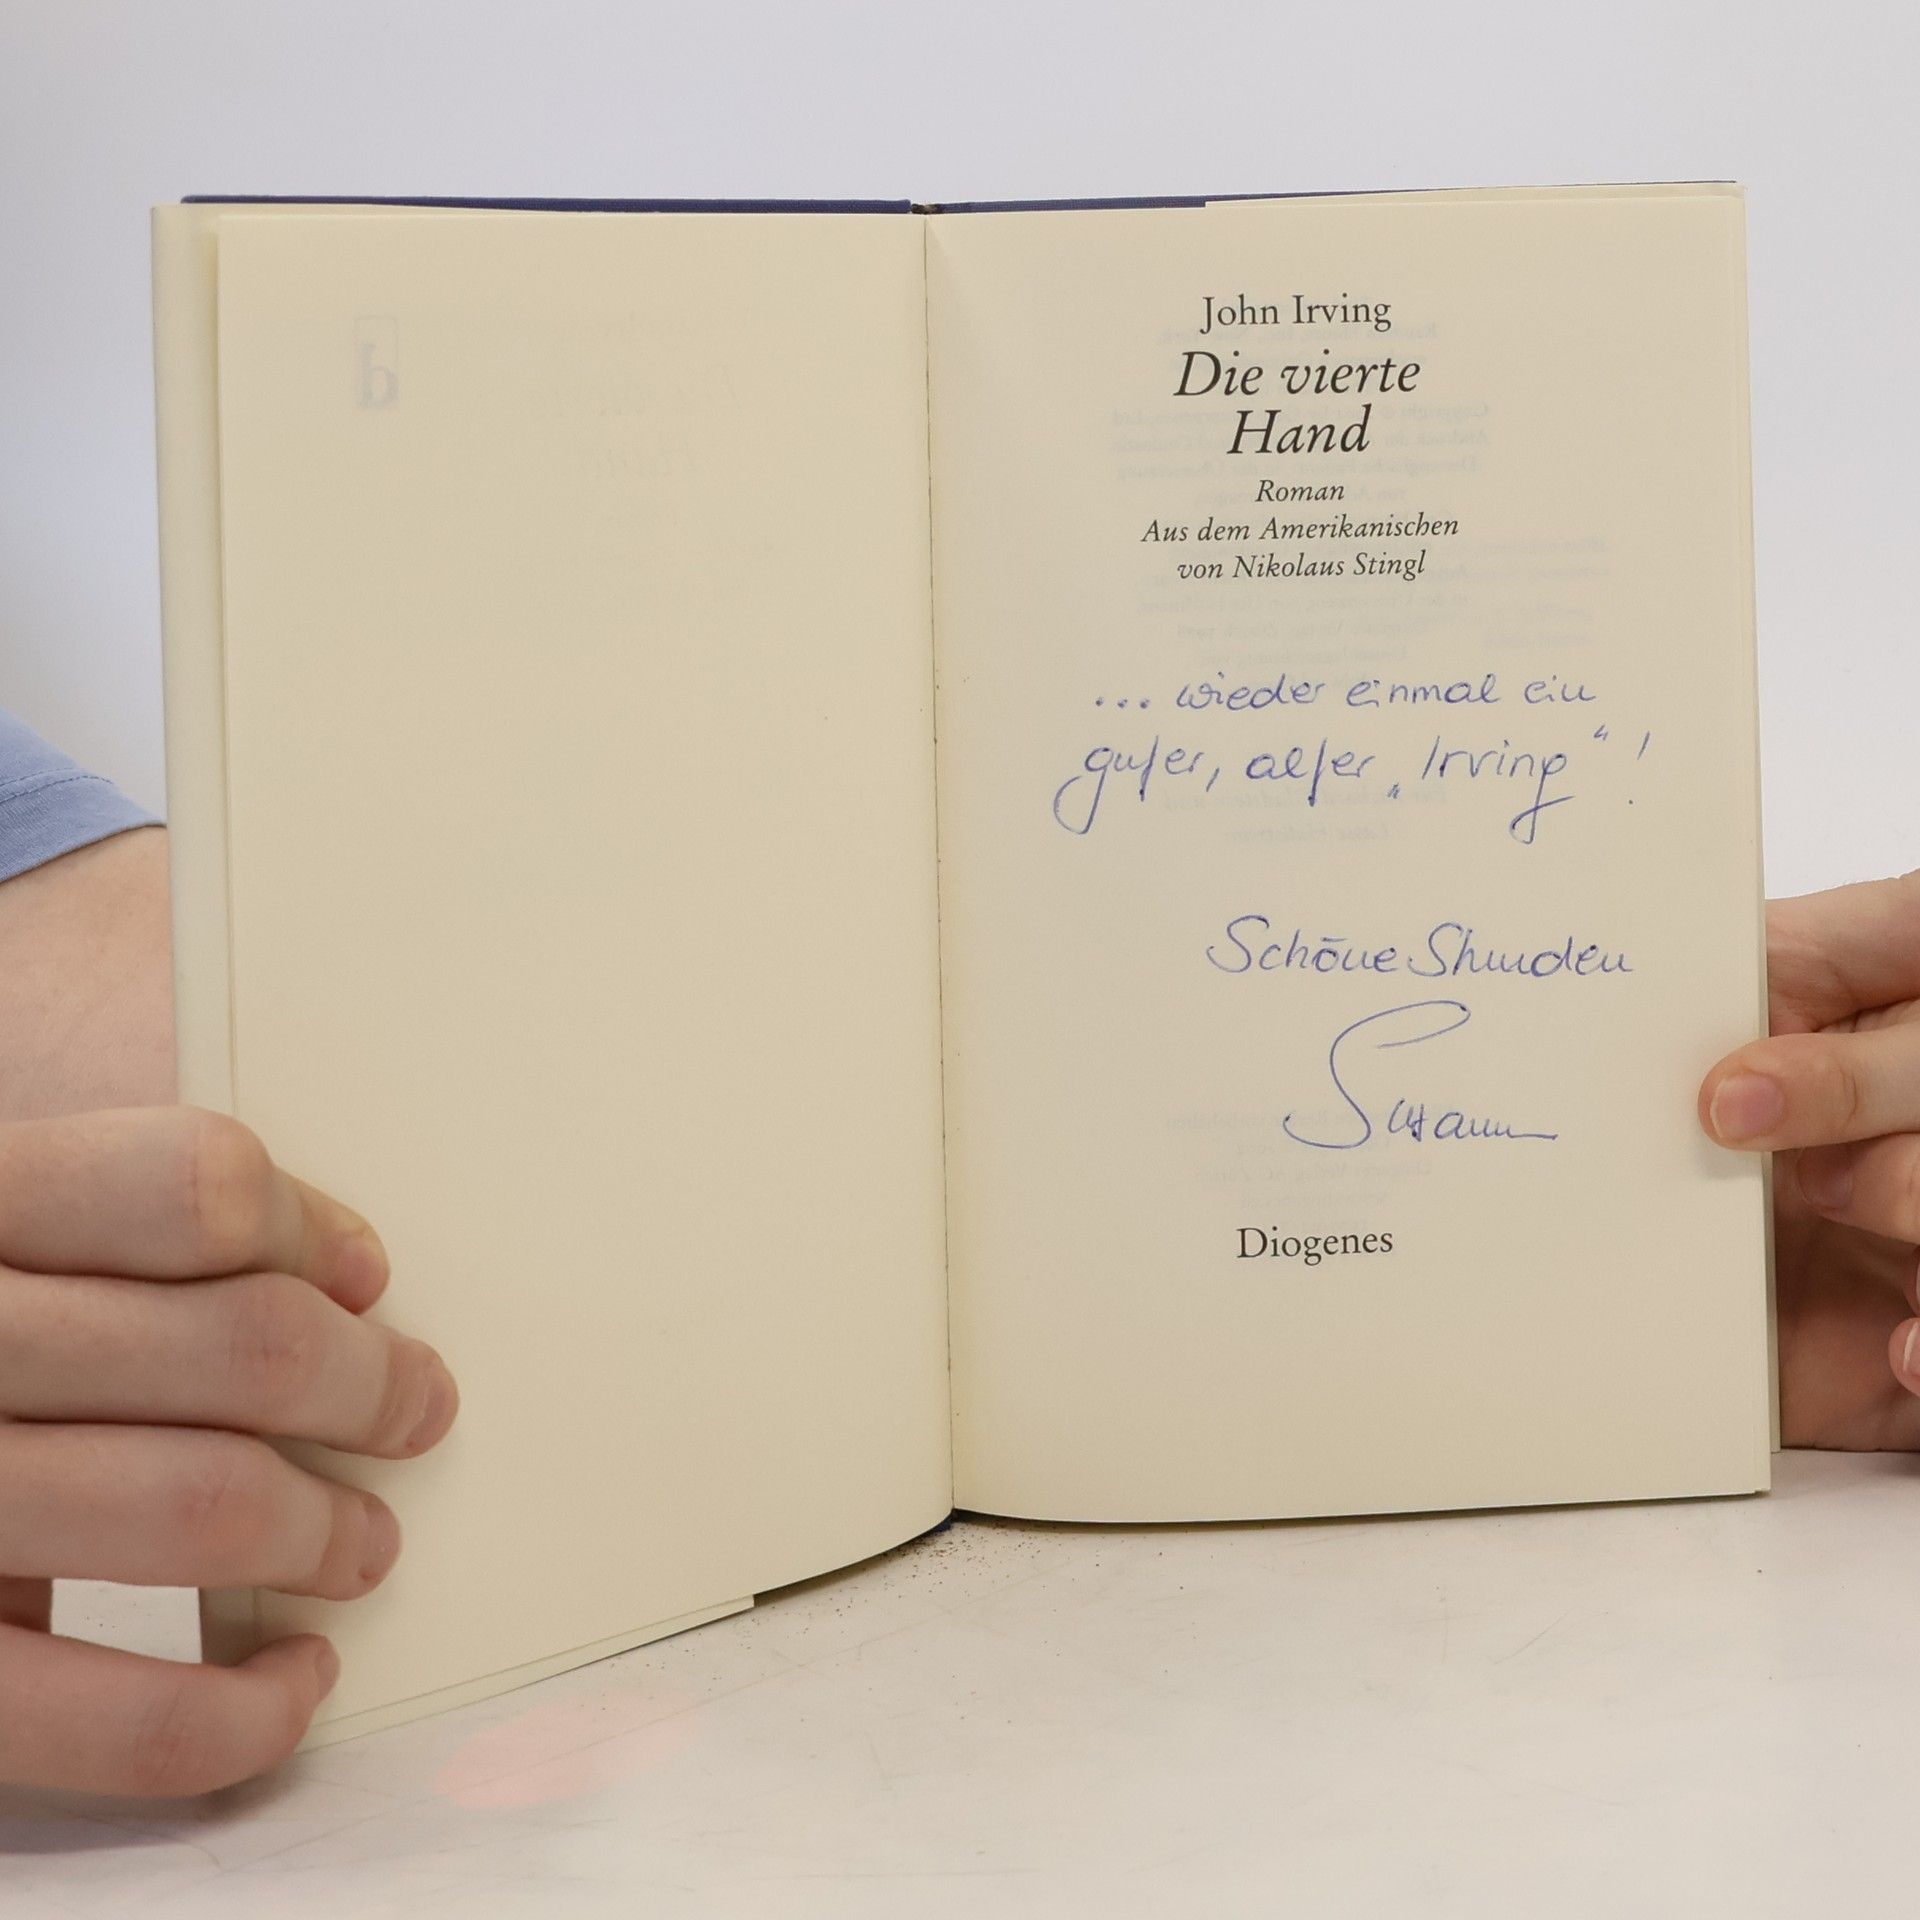 d
John Irving
Die vierte
Hand
Roman
Aus dem Amerikanischen
von Nikolaus Stingl
... wieder einmal ein
guter, alter „Irving“!
Schöne Stunden
Susann
Diogenes